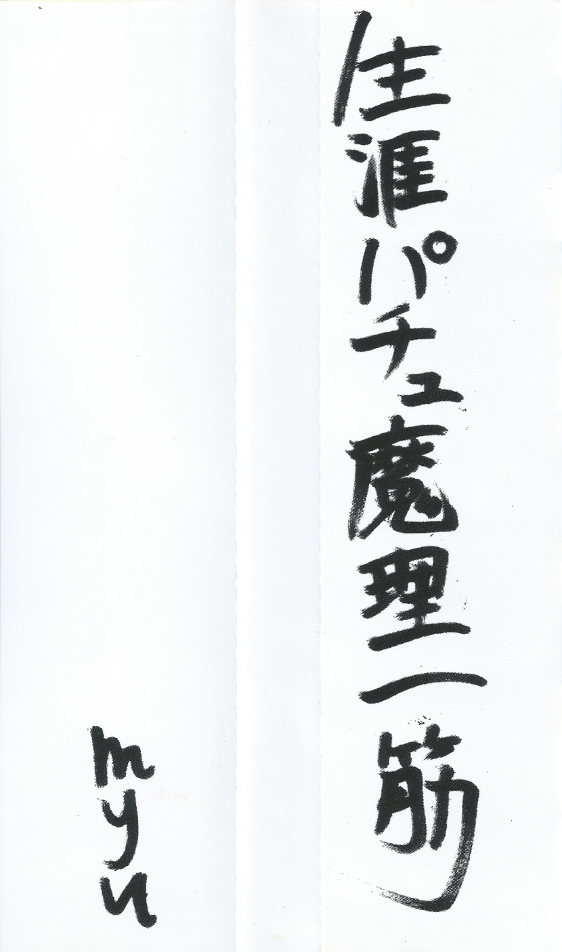 生涯パチュ魔理一筋
myu